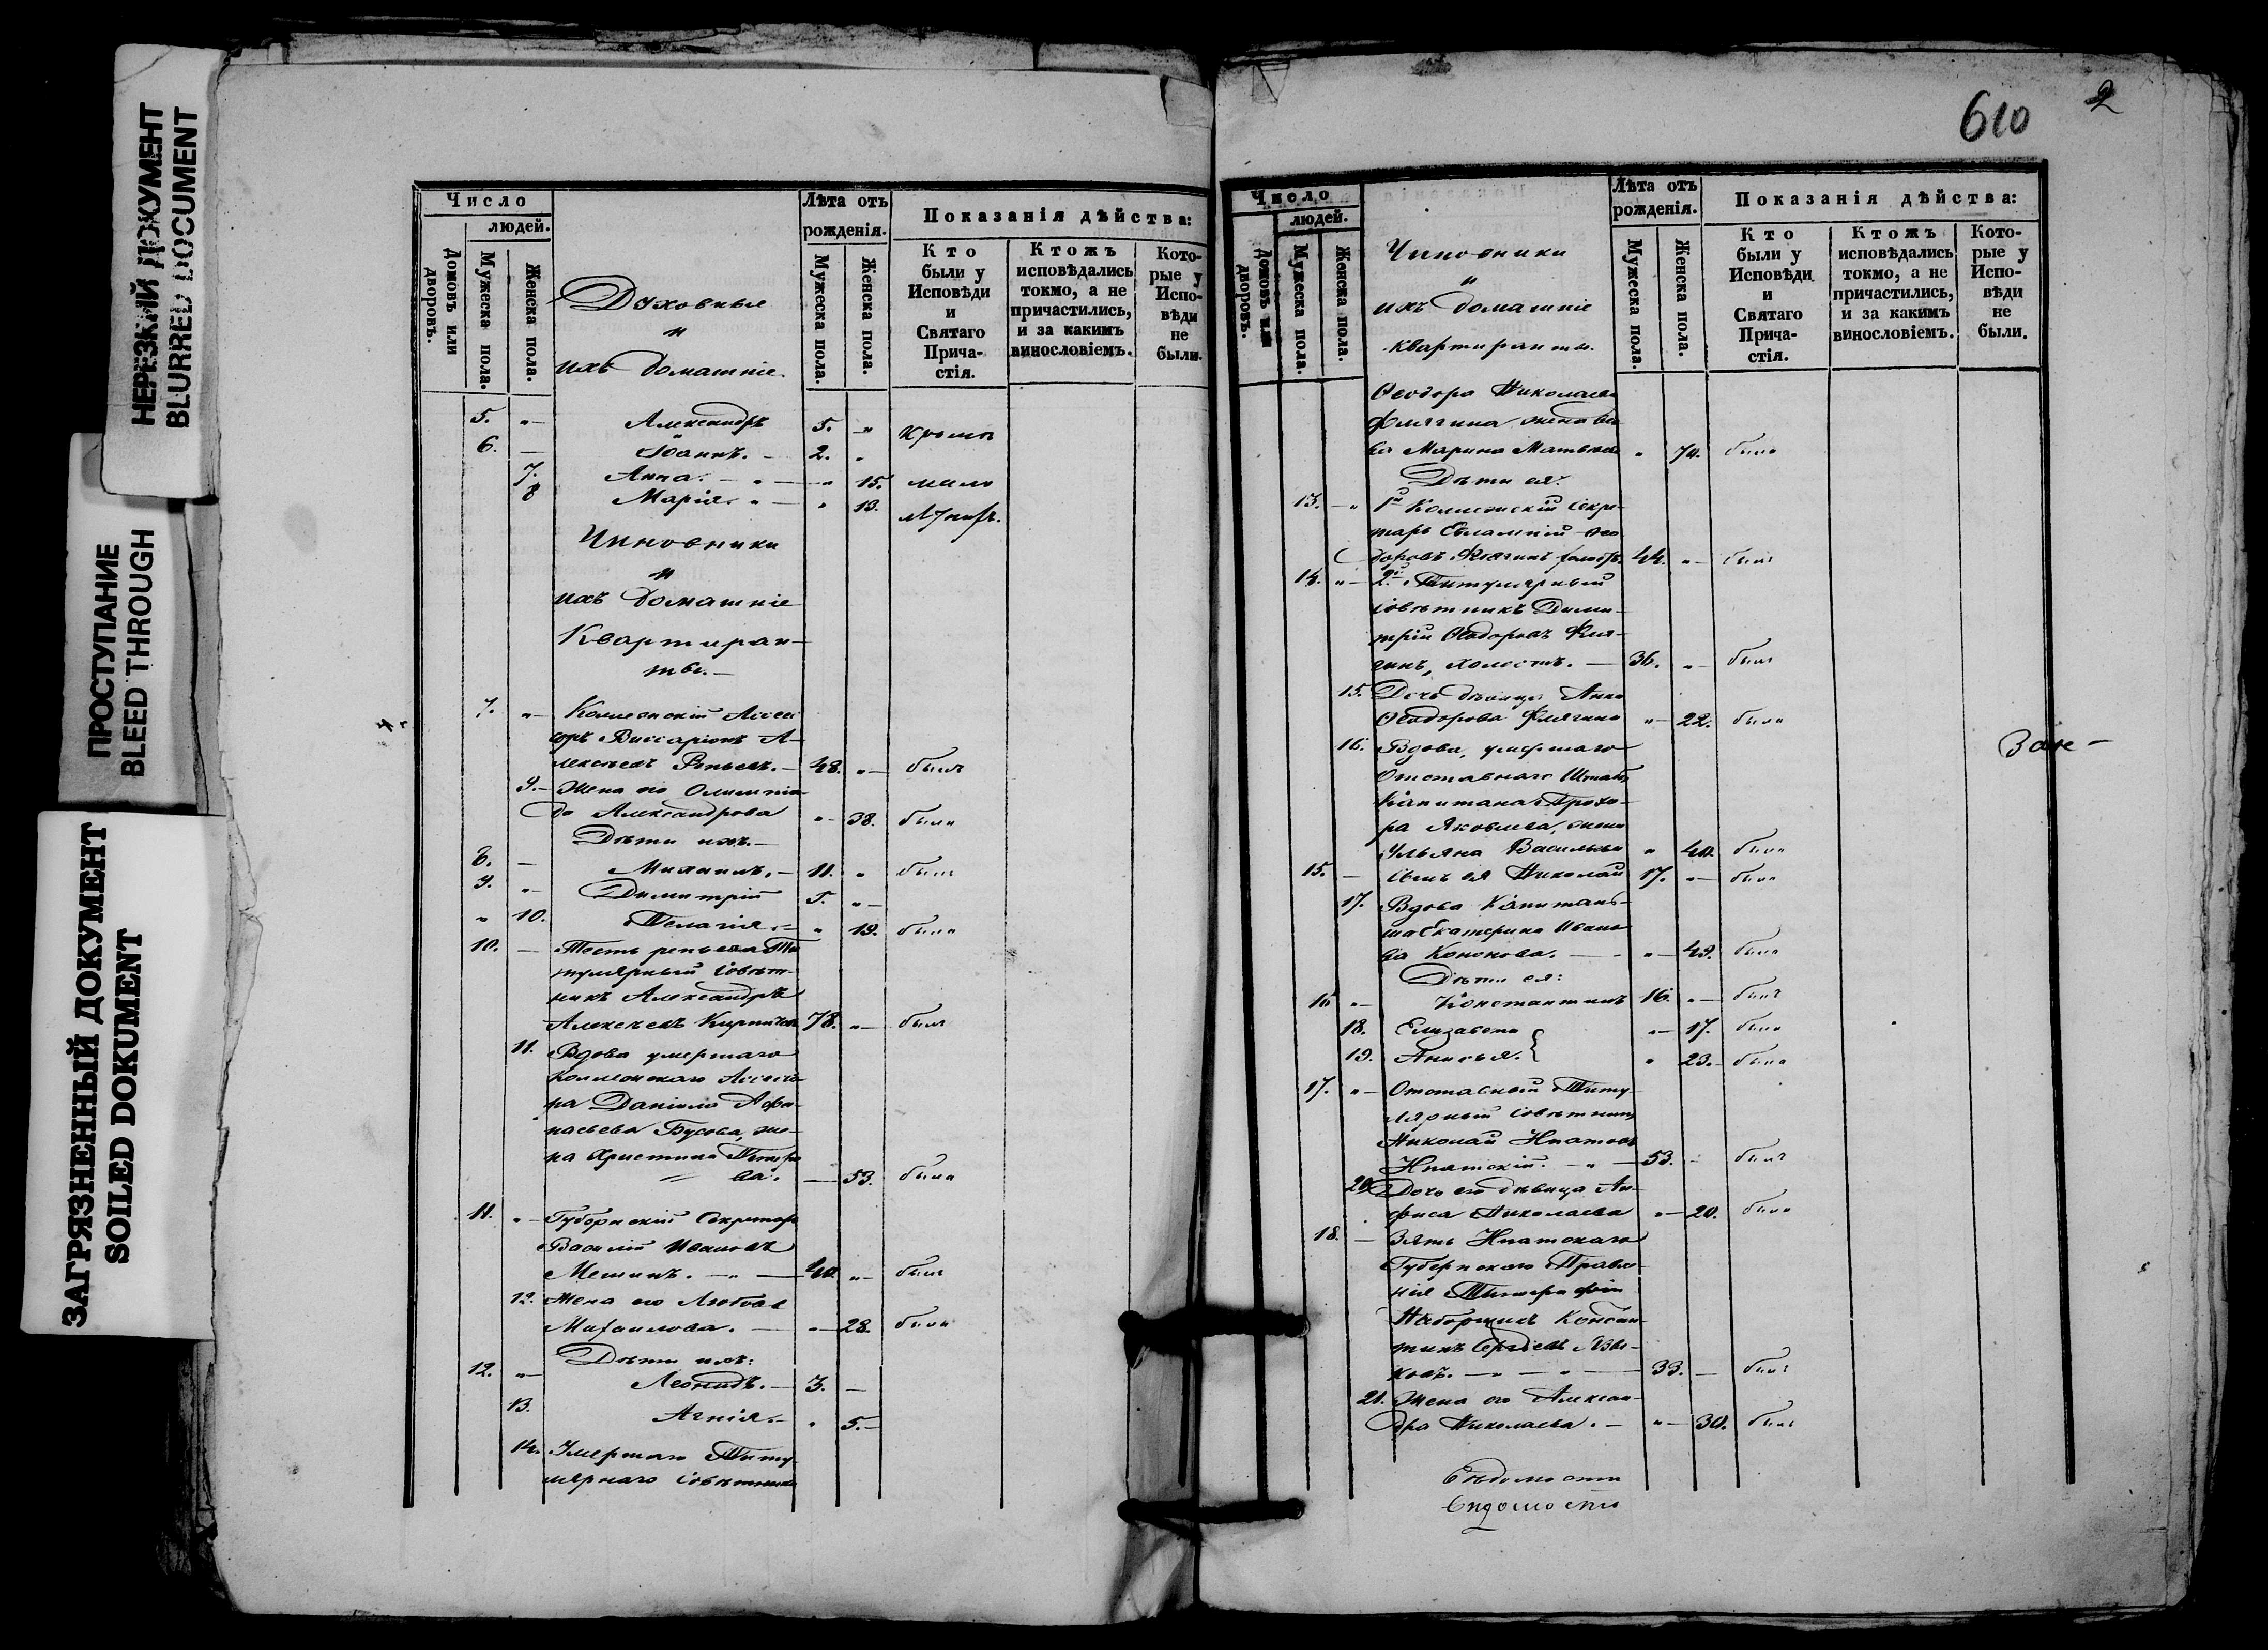 НЕРЕЗКИЙ ДОКУМЕНТ
BLURRED DOCUMENT
ПРОСТУПАНИЕ
BLEED THROUGH
ЗАГРЯЗНЕННЫЙ ДОКУМЕНТ
SOILED DOKUMENT
Число
людей.
Домовъ или дворовъ.
Мужеска пола.
Женска пола.
Духовные
и
ихъ домашніе.
Лѣта отъ
рожденія.
Мужеска пола.
Женска пола.
Показанія дѣйства:
Кто
были у
Исповѣди
и
Святаго
Прича-
стія.
Ктожъ
исповѣдались
токмо, а не
причастились,
и за какимъ
винословіемъ.
Кото-
рые у
Испо-
вѣди
не
были.
5. Александръ 5.
6. Іоаннъ. 2.
7. Анна. 15.
8 Марія. 13.
Чиновники
и
ихъ домашніе
Квартиран-
ты.
7. Коллежскій Ассес
соръ Виссаріонъ А-
лексѣевъ 48. былъ
9. Жена его Олимпіа
да Александрова 38. была
Дѣти ихъ.
8. Михаилъ. 11. былъ
9. Димитрій 5.
10. Пелагія. 19. была
10. Тесть Ти
тулярный Совѣт-
никъ Александръ
Алексѣевъ 78. былъ
11. Вдова умершаго
Коллежскаго Ассесо
ра Даніила Афа-
насьева Бусова, же-
на Христина Петро
ва. 53. была
11. Губернскій Секретарь
Василій Ивановъ
Мешинъ. 40. былъ
12. Жена его Любовь
Михаилова. 28. была
Дѣти ихъ:
12. Леонидъ. 3.
13. Агнія. 5.
14. Умершаго Титу
лярнаго Совѣтника
610 2
Число
людей.
Домовъ или дворовъ.
Мужеска пола.
Женска пола.
Чиновники
и
ихъ домашніе
квартиранты.
Лѣта отъ
рожденія.
Мужеска пола.
Женска пола.
Показанія дѣйства:
Кто
были у
Исповѣди
и
Святаго
Прича-
стія.
Ктожъ
исповѣдались
токмо, а не
причастились,
и за какимъ
винословіемъ.
Кото-
рые у
Испо-
вѣди
не
были.
Ѳеодора Николаева
Флягина жена вдо
ва Марина Матвѣева 70. была
Дѣти ея:
13. 1й Коллежскій Секре-
тарь Евлампій Ѳео
доровъ Флягинъ холостъ 44. былъ
14. 2й Титулярный
Совѣтникъ Дими-
трій Ѳеодоровъ Фля-
гинъ, холостъ. 36. былъ
15. Дочь дѣвица Анна
Ѳеодорова Флягина 22. была
16. Вдова, умершаго
Отставнаго Штабсъ
Капитана Прохо-
ра Яковлева, жена
Ульяна Васильева 40. была
15. Сынъ ея Николай 17. былъ
17. Вдова Капитан-
ша Екатерина Ивано
ва Кононова. 49. была
Дѣти ея:
16 Константинъ 16. былъ
18. Елизавета 17. была
19. Анисья. 23. была
17. Отставный Титу-
лярный Совѣтникъ
Николай Игнатовъ
53. былъ
20. Дочь его дѣвица Ан-
фиса Николаева 20. была
18. Зять
Губернскаго Правле
нія Типографіи
Наборщикъ Констан
тинъ Сергѣевъ Язы-
ковъ. 33. былъ
21. Жена его Алексан-
дра Николаева. 30. была
Вѣдомости